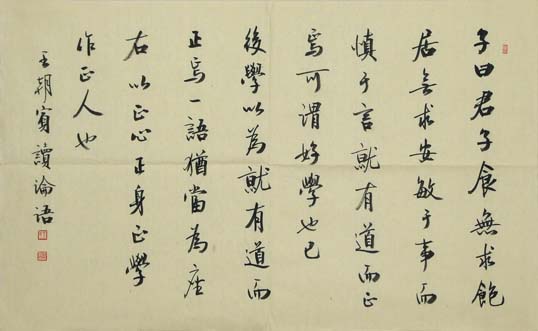 子曰君子食無求飽
居無求安敏于事而
慎于言就有道而正
焉可謂好學也已
後學以為就有道而
正焉一語猶當為座
右以正心正身正學
作正人也
王朝賓讀論语